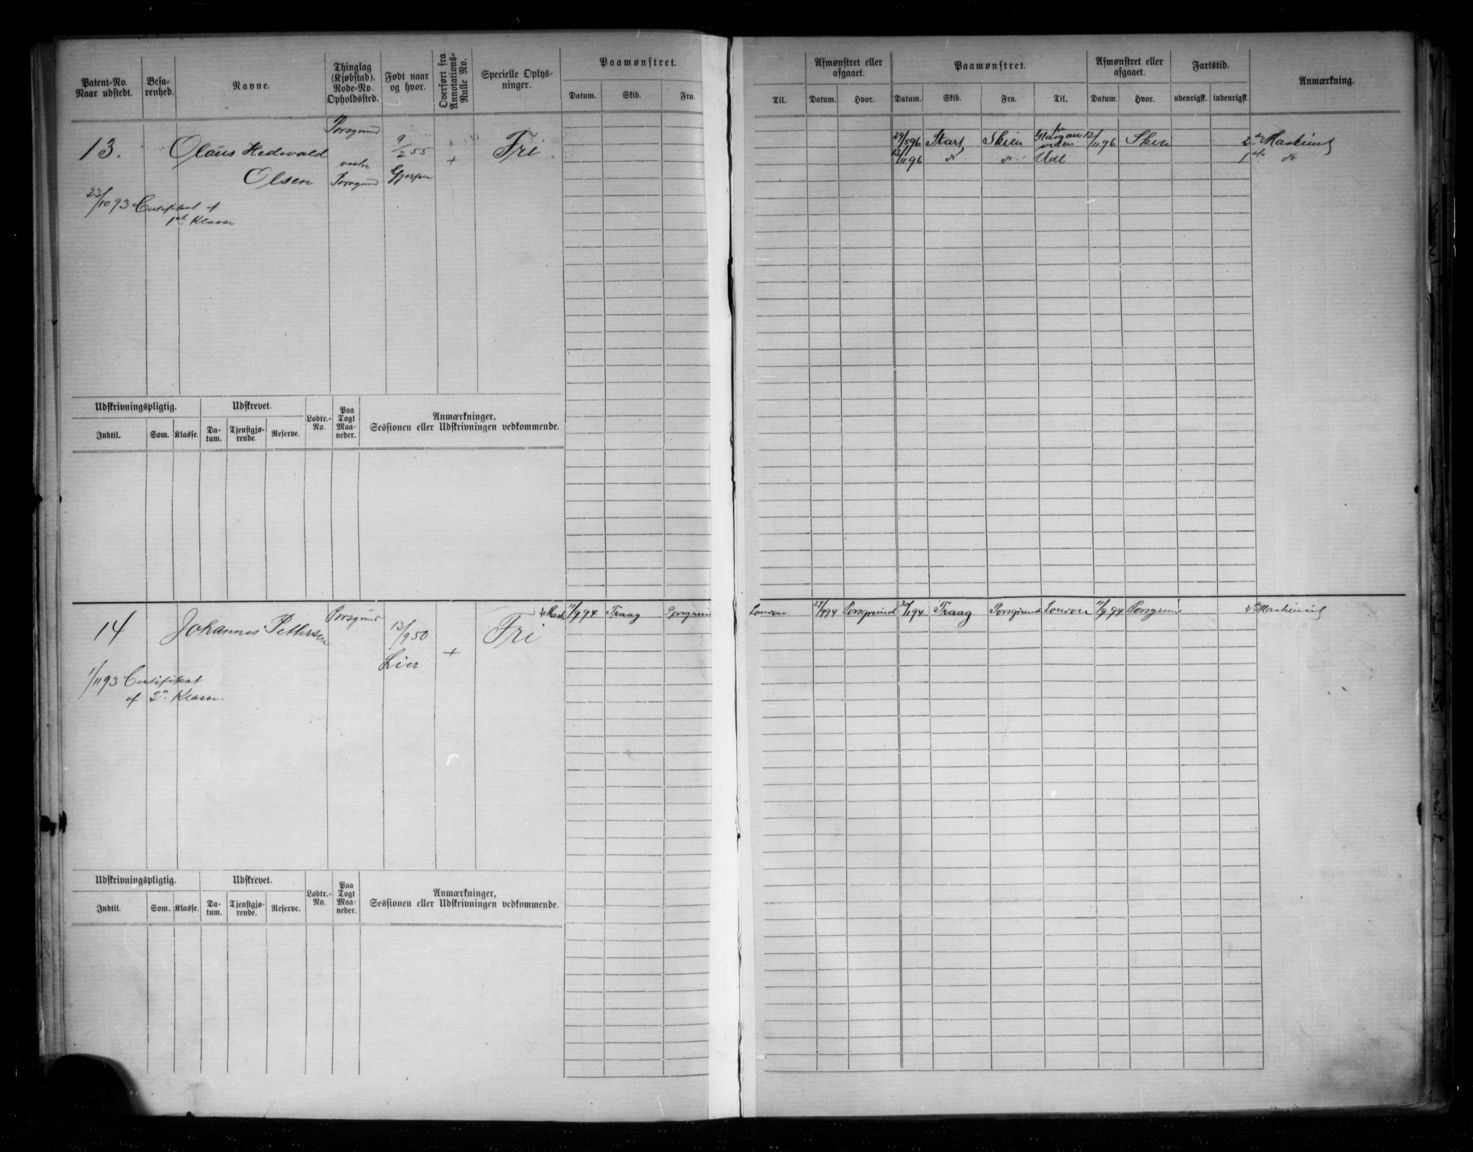 Patent-No. Naar udstedt.
Besa-renhed.
Navne.
Thinglag (Kjøbstad). Rode-No. Opholdssted.
Født naar og hvor.
Overført fra Annotations-Rulle No.
Specielle Oplys-ninger.
Paamønstret.
Datum. Skib. Fra.
Til.
Afmønstret eller afgaaet.
Datum. Hvor.
Paamønstret.
Datum. Skib. Fra. Til.
Afmønstret eller afgaaet.
Datum. Hvor.
Fartstid.
udenrigsk. indenrigsk.
Anmærkning.
13.
Olaus Hedevald
Olsen
Porsgrund
vestre
Porsgrund
9/2 55
Gjerpen
+
Fri
23/10 93 Certifikat af
1ste Klasse
29/5 96 Start Skien 13/11 96 Skien 2den Maskinist
13/11 96 do do Udl 1ste do
Udskrivningspligtig. Udskrevet. Lodtr.-No. Paa Togt Maa-neder. Anmærkninger,
Sessionen eller Udskrivningen vedkommende.
Indtil. Som. Klasse. Da-tum. Tjenstgjø-rende. Reserve.
14
Johannes Pettersen
Porsgrund
13/9 50
Lier
+
Fri
Traag Porsgrund
Porsgrund Traag Porsgrund Porsgrund Maskinist
1/11 93 Certifikat
af 2den Klasse.
Udskrivningspligtig. Udskrevet. Lodtr.-No. Paa Togt Maa-neder. Anmærkninger,
Sessionen eller Udskrivningen vedkommende.
Indtil. Som. Klasse. Da-tum. Tjenstgjø-rende. Reserve.